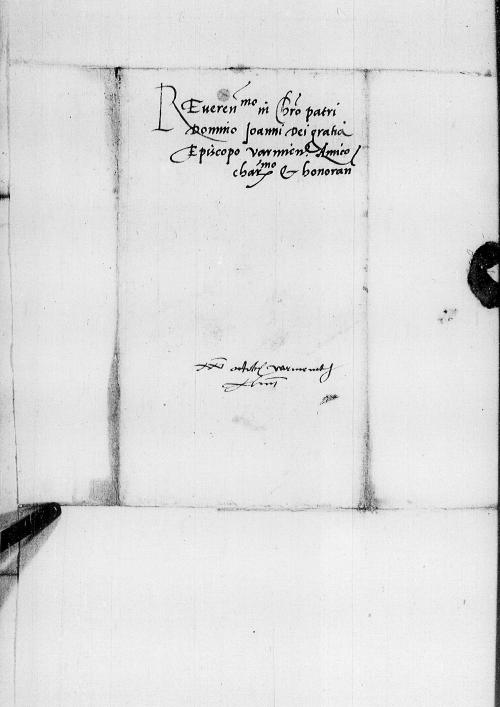 REveren^mo in Chro patri
Domino Joanni Dei gratia
Episcopo varmien. Amico
char^mo & honoran